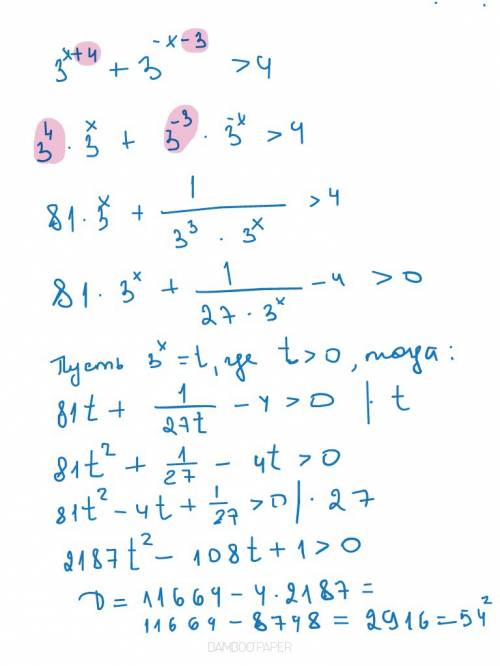 3^{x+4} + 3^{-x-3} > 4
3^4 · 3^x + 3^{-3} · 3^{-x} > 4
81 · 3^x + 1/(3^3 · 3^x) > 4
81 · 3^x + 1/(27 · 3^x) - 4 > 0
Пусть 3^x = t, где t > 0, тогда:
81t + 1/(27t) - 4 > 0 | · t
81t^2 + 1/27 - 4t > 0
81t^2 - 4t + 1/27 > 0 | · 27
2187t^2 - 108t + 1 > 0
D = 11664 - 4 · 2187 =
11664 - 8748 = 2916 = 54^2
BAMBOOPAPER